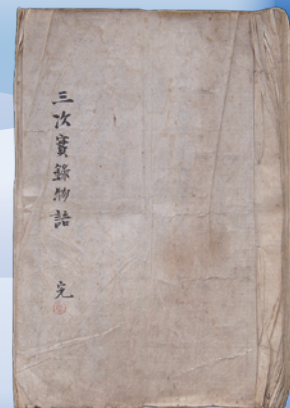 三次實錄物語 完